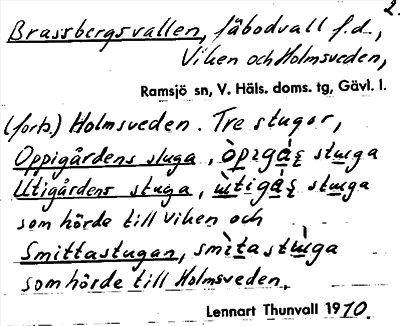 2.
Brassbergsvallen, fäbodvall f.d.,
Viken och Holmsveden,
Ramsjö sn, V. Häls. doms. tg, Gävl. l.
(forts.) Holmsveden. Tre stugor,
Oppigårdens stuga,
Utigårdens stuga,
som hörde till Viken och
Smittastugan,
som hörde till Holmsveden.
Lennart Thunvall 1910.